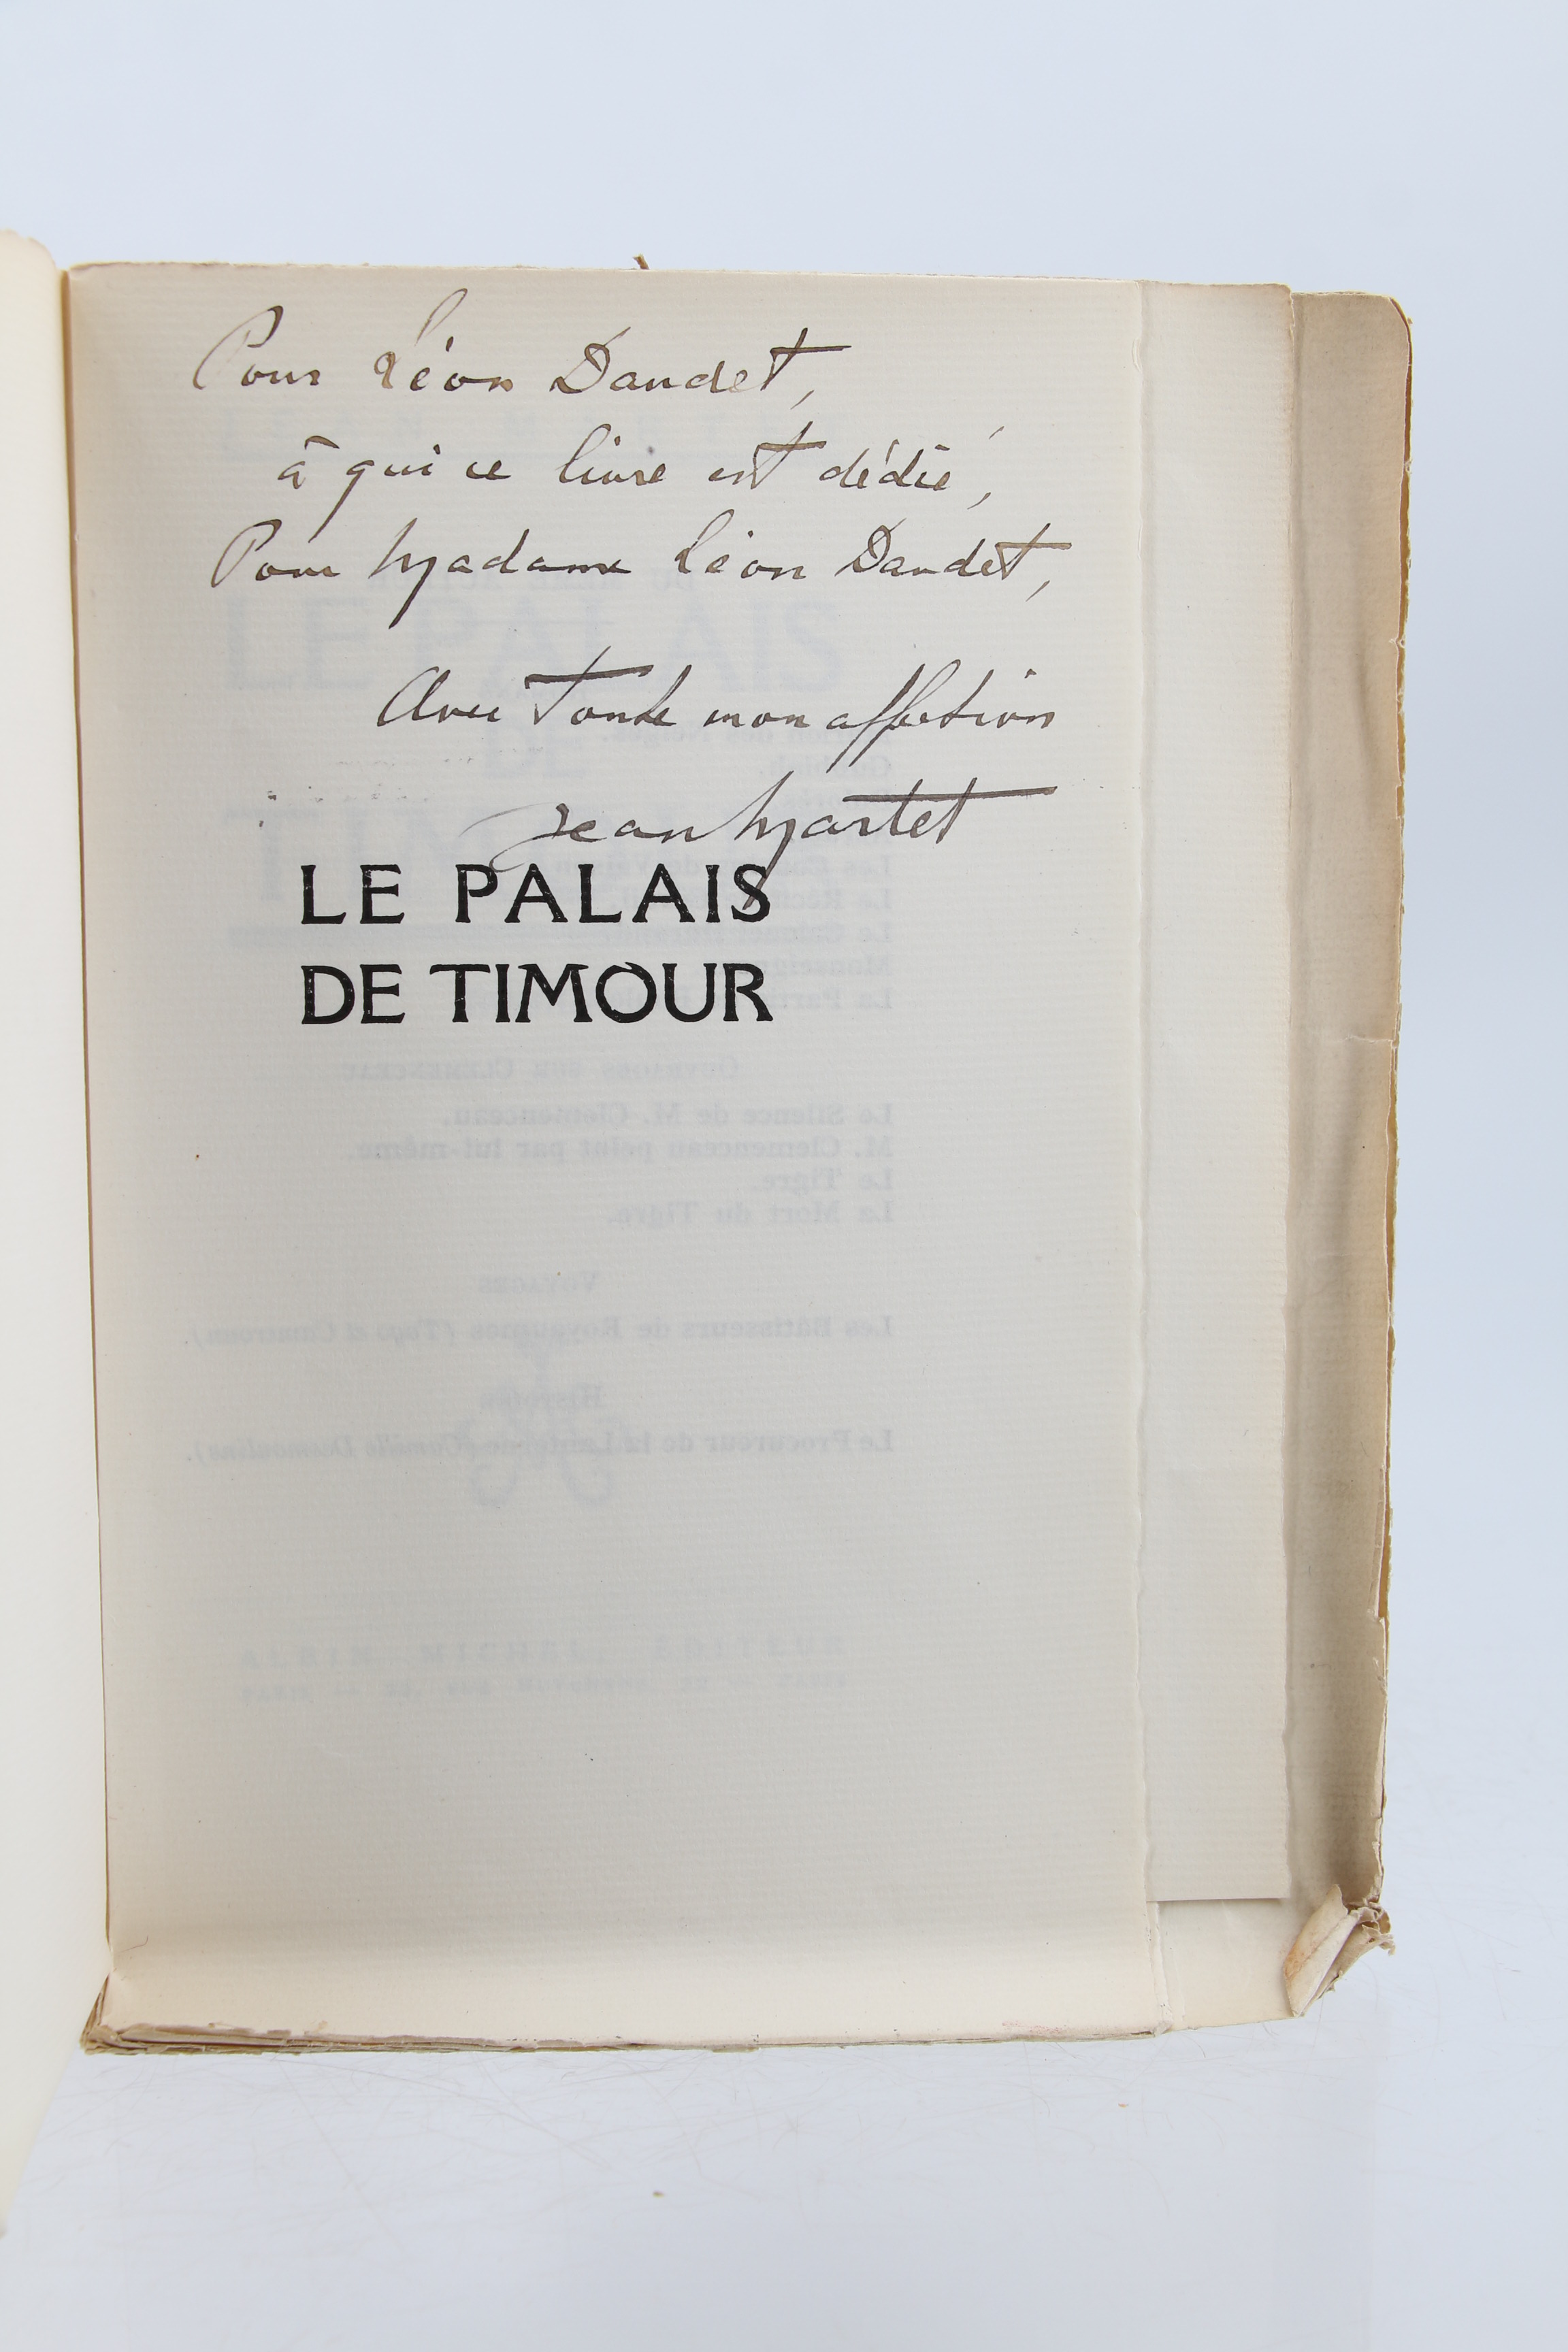 Pour Léon Daudet,
à qui ce livre est dédié,
Pour Madame Léon Daudet,
Avec toute mon affection
Jean Martet
LE PALAIS
DE TIMOUR